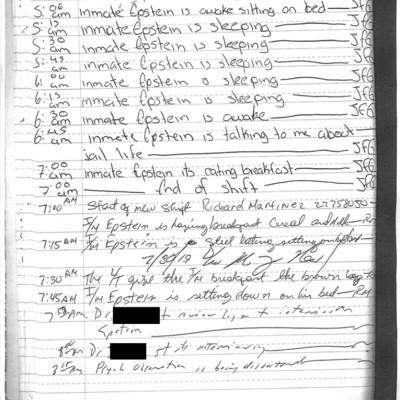 5:00 am inmate Epstein is awake sitting on bed JFG
5:15 am inmate Epstein is sleeping JFG
5:30 am inmate Epstein is sleeping JFG
5:45 am inmate Epstein is sleeping JFG
6:00 am inmate Epstein is sleeping JFG
6:15 am inmate Epstein is sleeping JFG
6:30 am inmate Epstein is awake JFG
6:45 am inmate Epstein is talking to me about
jail life JFG
7:00 am inmate Epstein is eating breakfast JFG
7:00 am end of shift JFG
7:00 AM Start of new shift Richard Martinez
I/M Epstein is having breakfast Cereal and Milk
7:15 AM I/M Epstein is still setting on
7/30/19
7:30 AM The give the I/M breakfast the brown bag
7:45 AM I/M Epstein is setting down on his bed RM
Dr review log
Epstein
Dr
Psych Observation is being